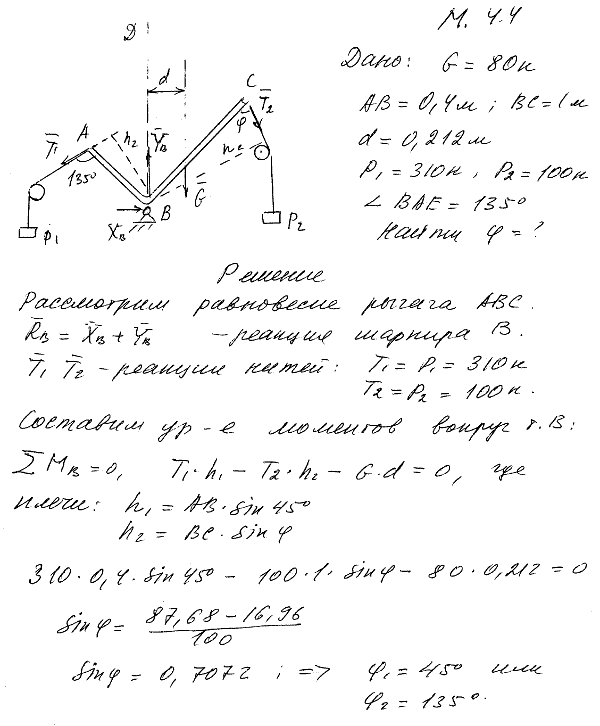 М. 4.4
Дано: G = 80н
AB = 0,4м ; BC = 1м
d = 0,212м
P₁ = 310н , P₂ = 100н
∠ BAE = 135°
Найти φ = ?
D
d
C
T̄₂
A
h₂
Ȳ_B
φ
T̄₁
135°
Ḡ
B
X̄_B
P₁
P₂
Решение
Рассмотрим равновесие рычага ABC.
R̄_B = X̄_B + Ȳ_B – реакция шарнира B.
T̄₁ T̄₂ – реакции нитей: T₁ = P₁ = 310н
T₂ = P₂ = 100н.
Составим ур-е моментов вокруг т. B:
∑ M_B = 0, T₁·h₁ – T₂·h₂ – G·d = 0, где
плечи: h₁ = AB·sin 45°
h₂ = BC·sin φ
310·0,4·sin 45° – 100·1·sin φ – 80·0,212 = 0
sin φ = (87,68 – 16,96)/100
sin φ = 0,7072 ; => φ₁ = 45° или
φ₂ = 135°.